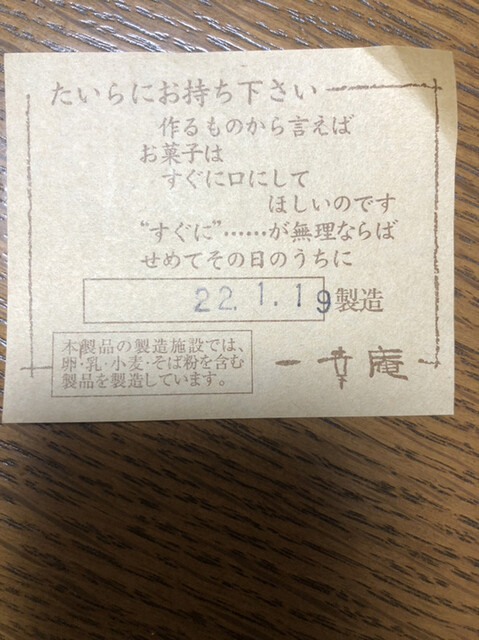 たいらにお持ち下さい
作るものから言えば
お菓子は
すぐに口にして
ほしいのです
“すぐに”……が無理ならば
せめてその日のうちに
22.1.19製造
本製品の製造施設では、
卵・乳・小麦・そば粉を含む
製品を製造しています。
一幸庵